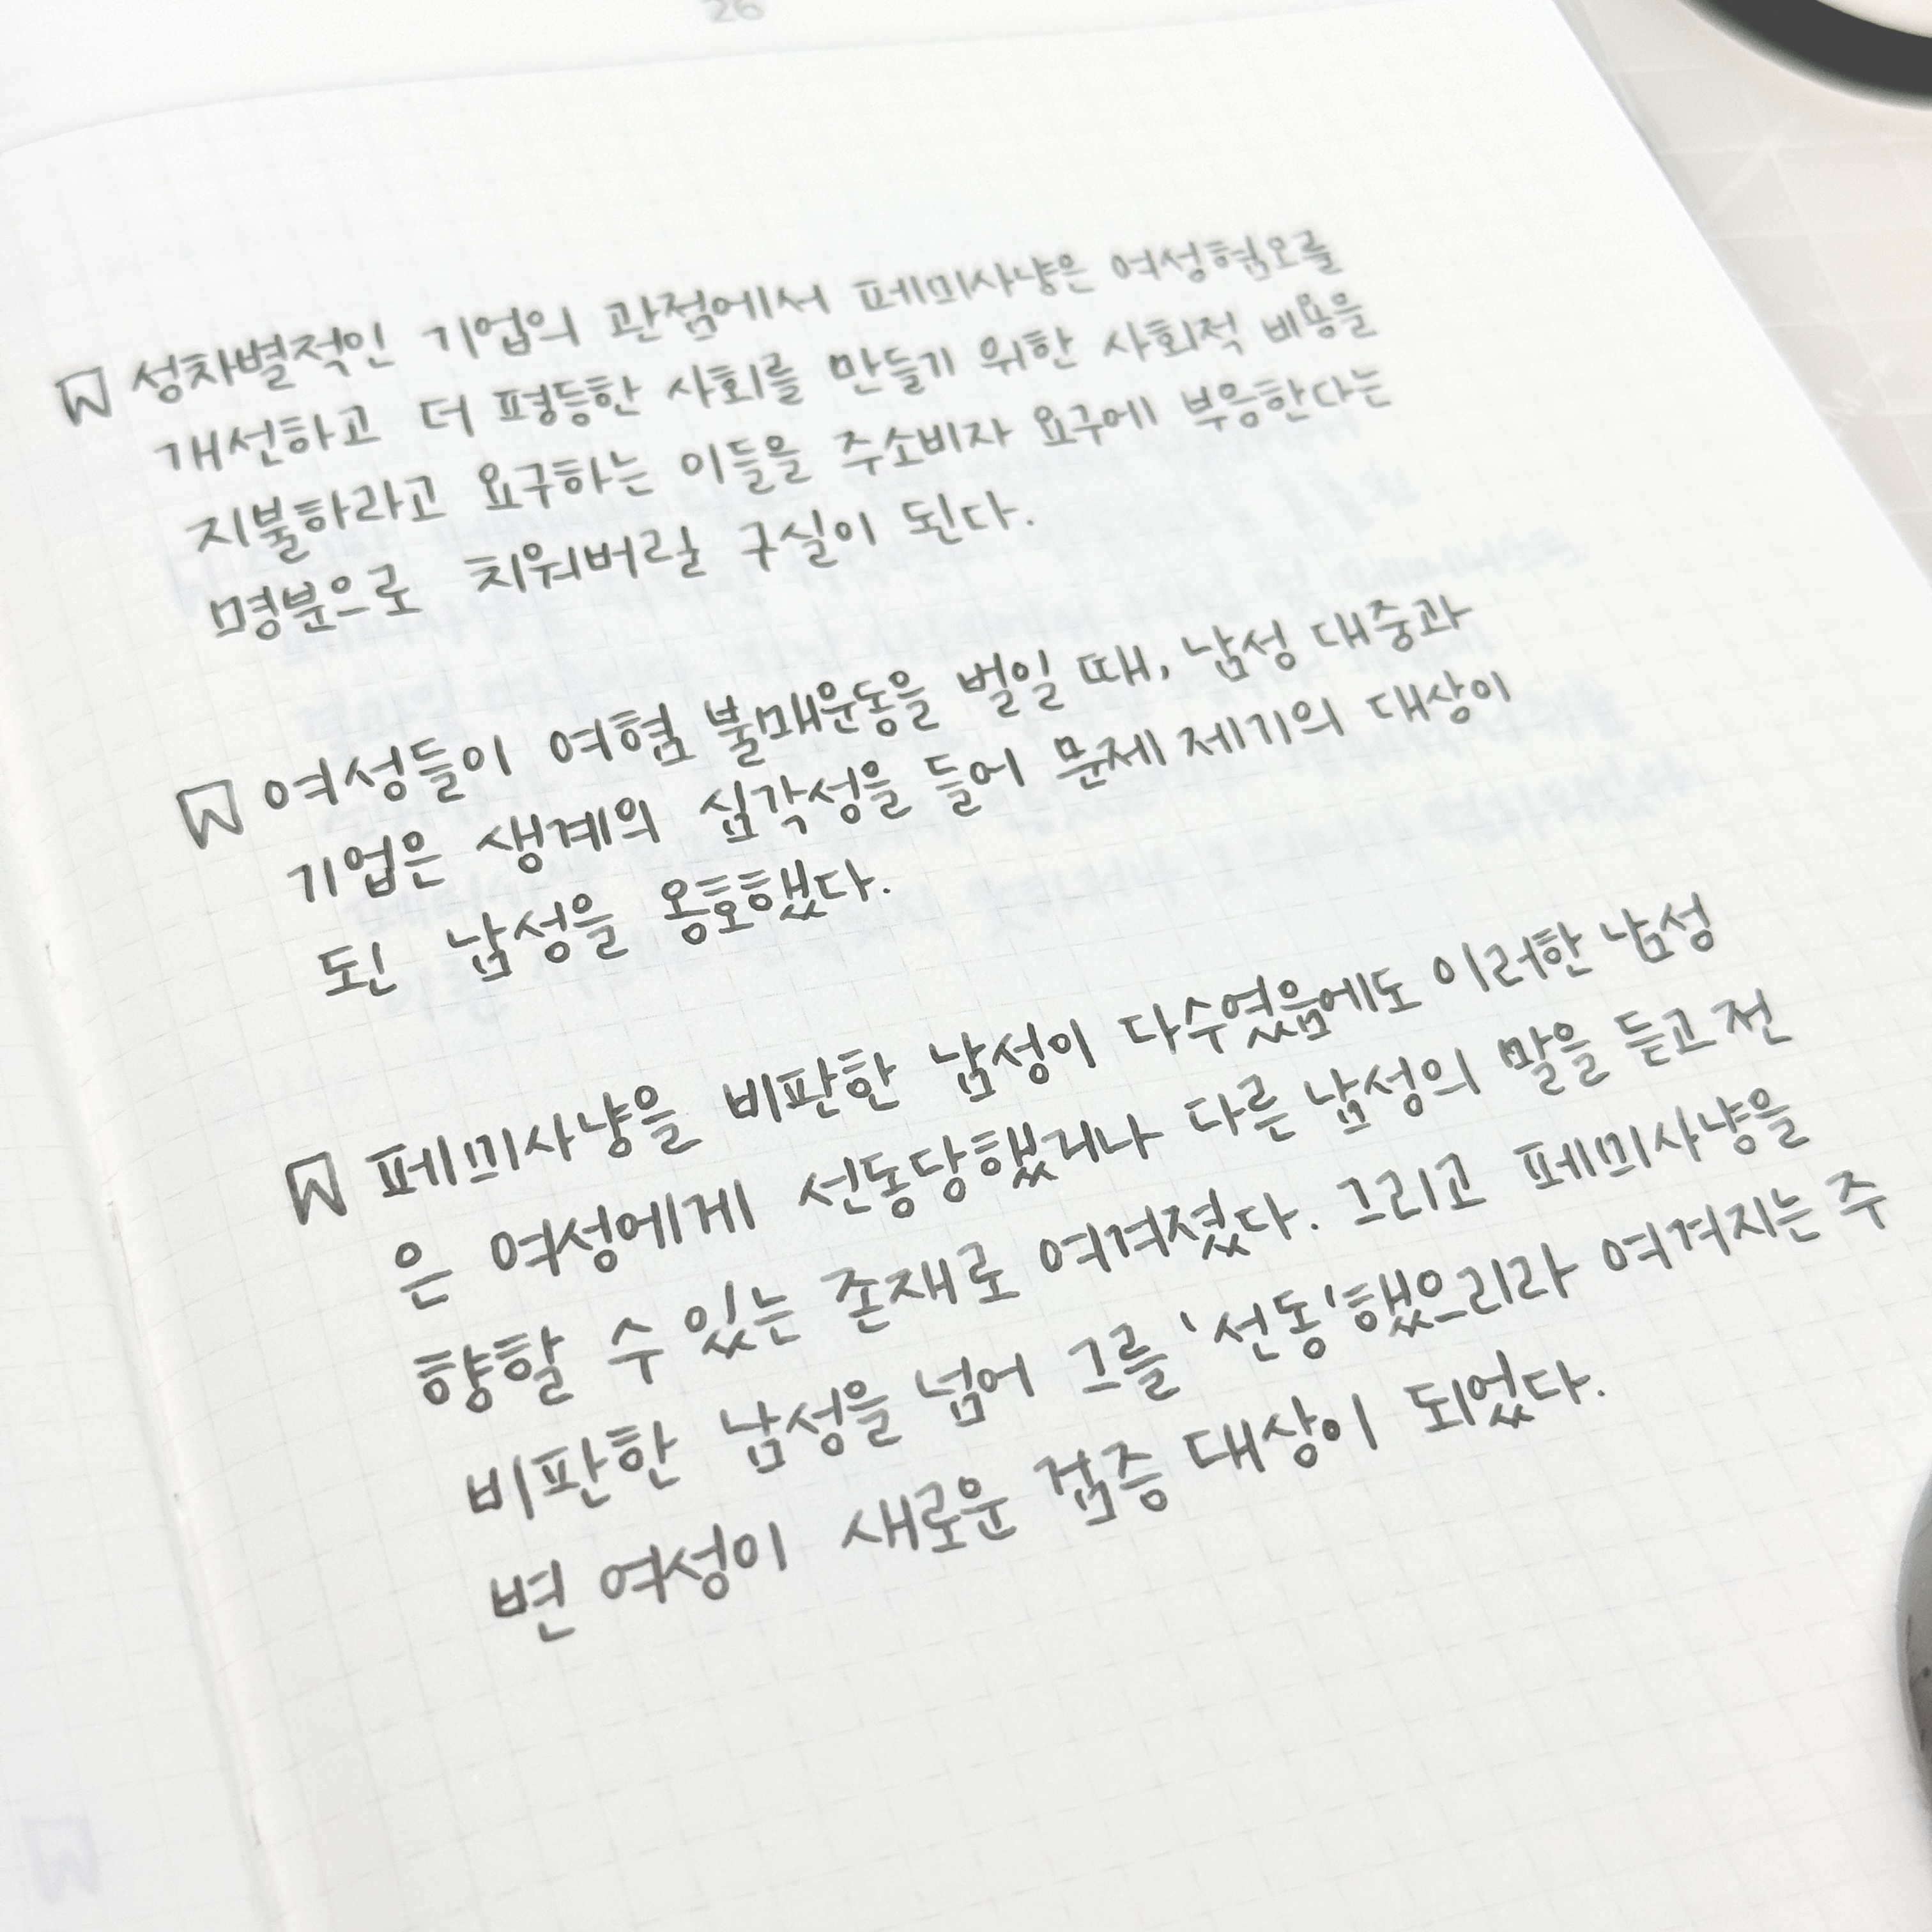 26
성차별적인 기업의 관점에서 페미사냥은 여성혐오를
개선하고 더 평등한 사회를 만들기 위한 사회적 비용을
지불하라고 요구하는 이들을 주소비자 요구에 부응한다는
명분으로 치워버릴 구실이 된다.
여성들이 여혐 불매운동을 벌일 때, 남성 대중과
기업은 생계의 심각성을 들어 문제 제기의 대상이
된 남성을 옹호했다.
페미사냥을 비판한 남성이 다수였음에도 이러한 남성
은 여성에게 선동당했거나 다른 남성의 말을 듣고 전
향할 수 있는 존재로 여겨졌다. 그리고 페미사냥을
비판한 남성을 넘어 그를 '선동'했으리라 여겨지는 주
변 여성이 새로운 검증 대상이 되었다.